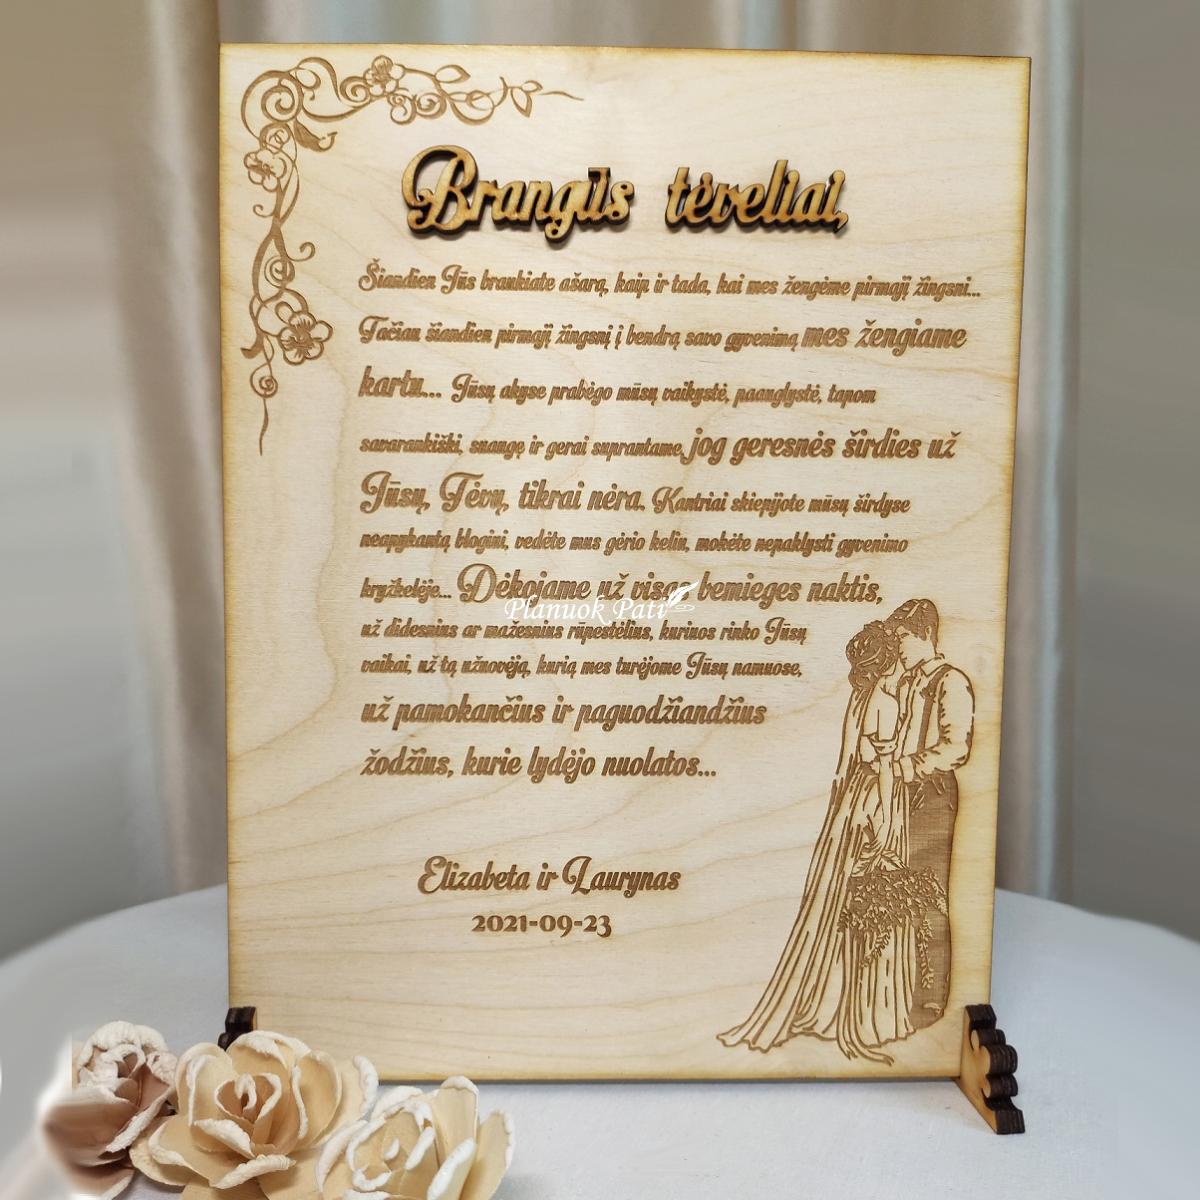 Brangūs tėveliai,
Šiandien Jūs braukiate ašarą, kaip ir tada, kai mes žengėme pirmąjį žingsnį...
Tačiau šiandien pirmąjį žingsnį į bendrą savo gyvenimą mes žengiame
kartu... Jūsų akyse prabėgo mūsų vaikystė, paauglystė, tapom
savarankiški, suaugę ir gerai suprantame, jog geresnės širdies už
Jūsų, Tėvų, tikrai nėra. Kantriai skiepijote mūsų širdyse
neapykantą blogiui, vedėte mus gėrio keliu, mokėte nepaklysti gyvenimo
kryžkelėje... Dėkojame už visas bemieges naktis,
Planuok Pati
už didesnius ar mažesnius rūpestėlius, kuriuos rinko Jūsų
vaikai, už tą užuovėją, kurią mes turėjome Jūsų namuose,
už pamokančius ir paguodžiandžius
žodžius, kurie lydėjo nuolatos...
Elizabeta ir Laurynas
2021-09-23